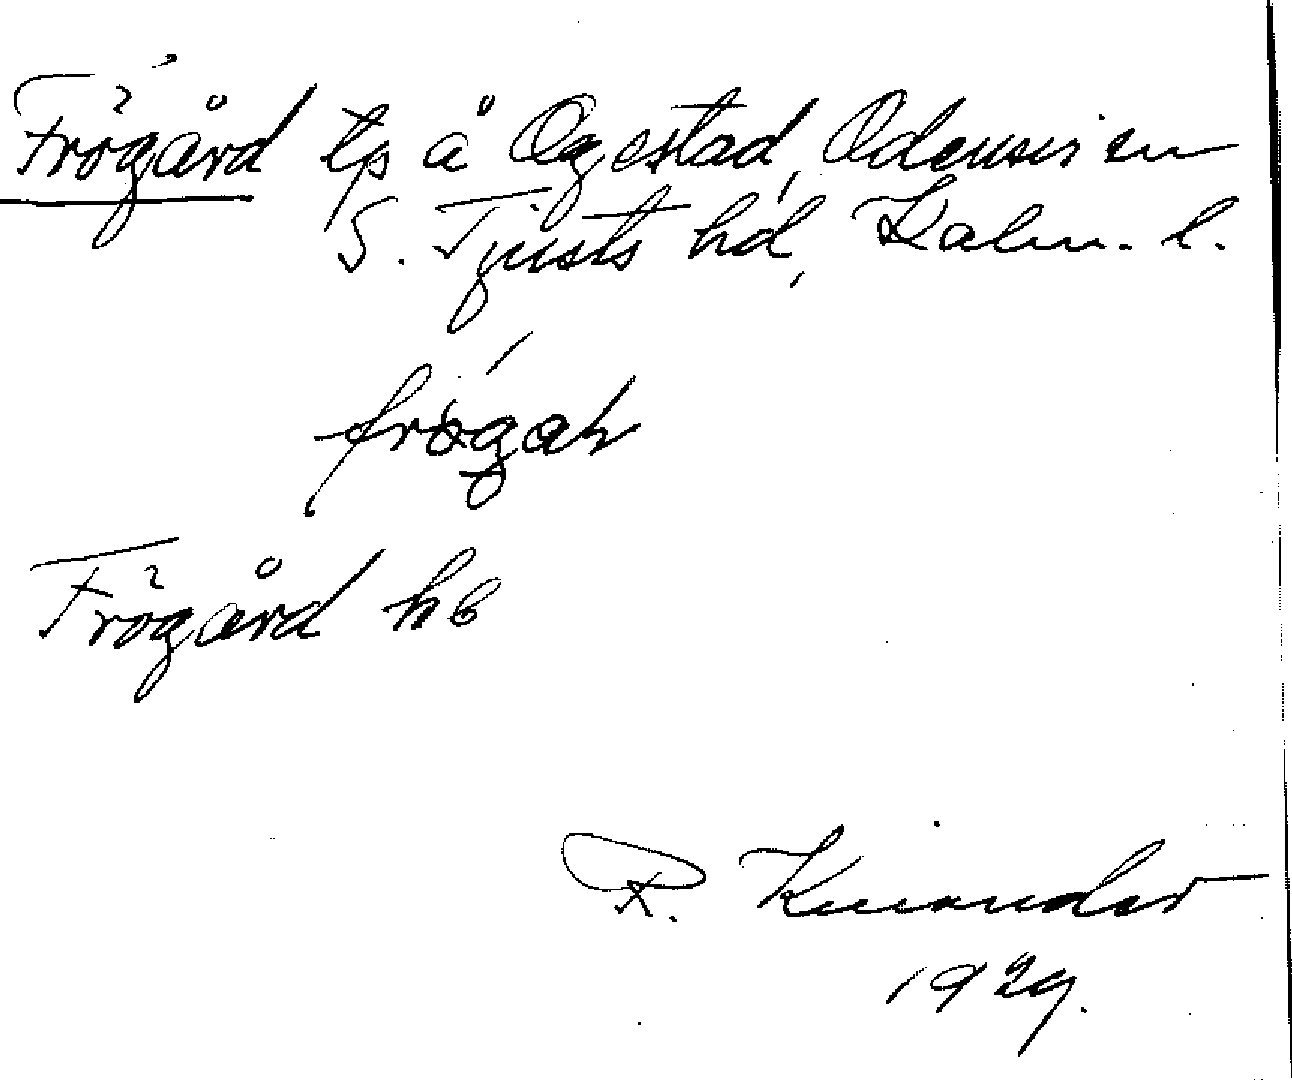 Frögård tp å Ogestad, Odensvi sn
S. Tjusts hd, Kalm. l.
frögaḷ
Frögård hb
R. Kinander
1929.